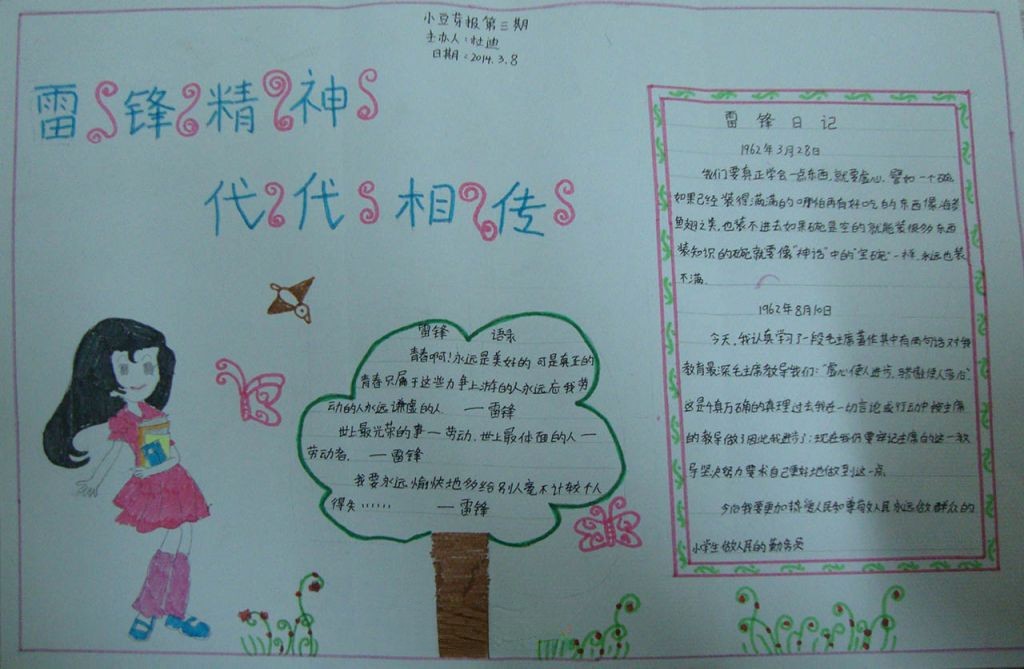 小豆芽报第三期
主办人：杜迪
日期：2014.3.8
雷锋精神
代代相传
雷锋语录
青春啊！永远是美好的可是真正的
青春只属于这些力争上游的人永远忘我劳
动的人永远谦虚的人 —雷锋
世上最光荣的事—劳动.世上最体面的人—
劳动者. —雷锋
我要永远愉快地多给别人毫不计较个人
得失…… —雷锋
雷锋日记
1962年3月28日
我们要真正学会一点东西,就要虚心.譬如一个碗,
如果已经装得满满的哪怕再有好吃的东西像海参
鱼翅之类,也装不进去如果碗是空的就能装很多东西
装知识的碗就要像"神话"中的"宝碗"一样.永远也装
不满.
1962年8月10日
今天,我认真学习了一段毛主席著作其中有两句话对我
教育最深毛主席教导我们:"虚心使人进步,骄傲使人落后"
这是千真万确的真理过去我在一切言论或行动中按主席
的教导做了因此我进步了;现在我仍要牢记主席的这一教
导坚决努力要求自己更好地做到这一点
今后我要更加热爱人民和尊敬人民永远做群众的
小学生做人民的勤务员